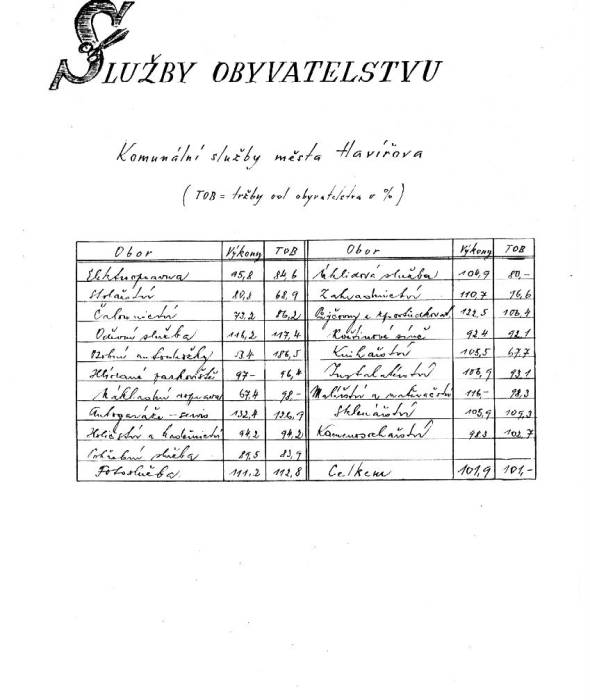 SLUŽBY OBYVATELSTVU
Komunální služby města Havířova
(TOB = tržby od obyvatelstva v %)
Obor Výkony TOB Obor Výkony TOB
Elektroopravna 95,8 84,6 Úklidová služba 104,9 80,-
Stolařství 80,8 68,9 Zahradnictví 110,7 76,6
Čalounictví 73,2 86,2 Půjčovny a 122,5 106,4
Oděvní služba 116,2 117,4 92,4 92,1
Osobní autodoprava 186,5 Knihařství 105,5 67,7
Hlídané parkoviště 97,- 96,4 Instalatérství 106,9 93,1
Nákladní doprava 67,4 98,- Malířství a natěračství 116,- 98,3
Autogaráže - servis 132,4 126,9 Sklenářství 105,9 109,3
Holičství a kadeřnictví 94,2 94,2 Kamenosochařství 98,3 102,7
Pohřební služba 89,5 83,9
Fotoslužba 111,2 112,8 Celkem 101,9 101,-